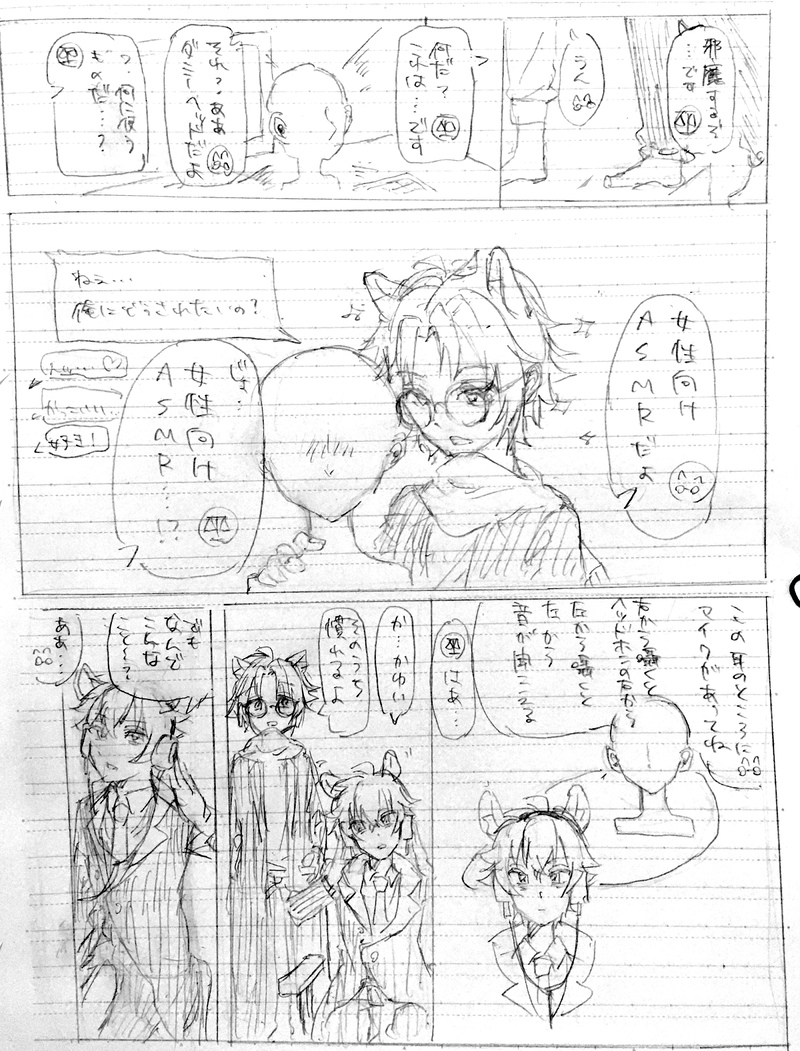 邪魔するぞ
…です
うん
何だ?
これは…です
それ?ああ
ダミーヘッドだよ
つ、何に使う
ものだ…?
女性向け
ASMRだよ
ねぇ…
俺にどうされたいの?
じょ…
女性向け
ASMR…!?
かっこいい…
この耳のところに
マイクがあってね
左から囁くと
ヘッドホンの左から
右から囁くと
右から
音が聞こえる
はぁ…
が…かわいい
そのうち
慣れるよ
でも
なんで
こんな
こと…?
ああ…